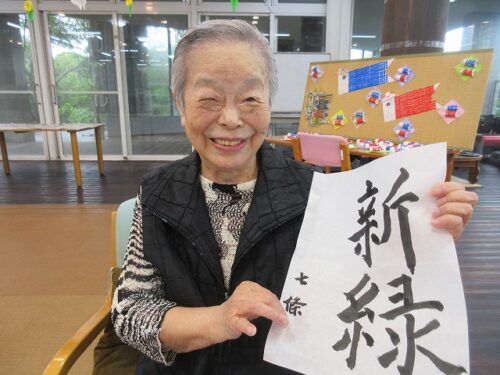 新緑
七條